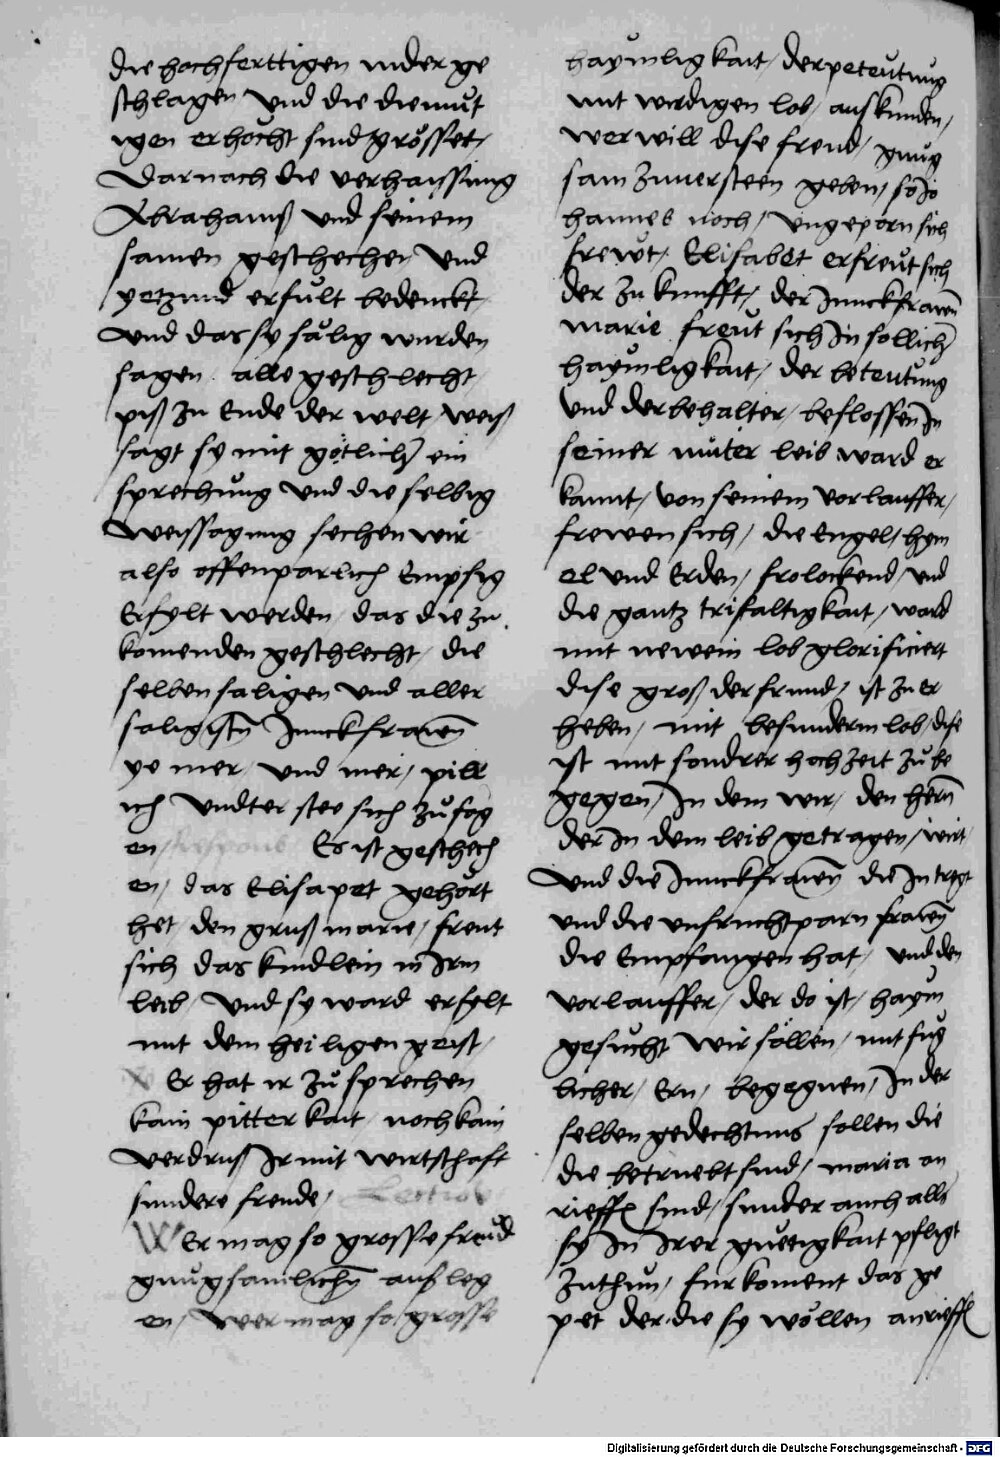 die hochferttigen nider ge
schlagen und die diemut
igen erhöcht sind grösset,
Darnach die verhaissung
Abrahams und seinem
samen geschechen und
yetzund erfult bedenckt,
und das sy sälig wurden
sagen alle geschlecht,
piß zu Ende der welt, weiß
sagt sy mit götlicher ein
sprechung und die selbig
weissagung sechen wir
also offenparlich Empsig
Erfylt werden, das die zu
komenden geschlecht, die
selben saligen und aller
saligisten Junckfrawen
ye mer, und mer, pill
ich undter stee sich zu sag
en, Respons Es ist geschech
en, das Elisapet gehört
het, den gruß marie, freut
sich das kindlein in Irm
leib, und sy ward erfylt
mit dem heiligen geist,
Er hat ir zu sprechen
kain pitterkait, noch kain
verdruß Ir mit wirtschaft
sundere freude, Lectio
WEr mag so grosse freud
gnugsamlichen auß leg
en, wer mag so grosse
haymligkait, der peteutung
mit wirdigen lob, auskunden,
wer will dise freud, gnug
sam zuuersteen geben, so Jo
hannes noch, ungeporn sich
frewt, Elisabet erfreut sich
der zu kunfft, der Junckfrawen
marie freut sich In sollicher
haymligkait, der beteutung
und der behalter, beslossen In
seiner muter leib ward er
kannt, von seinem vorlauffer,
frewen sich, die Engel, hym
el und Erden, frolockend, und
die gantz trifaltigkait, ward
mit newem lob glorificiert
dise groß der freund, ist zu er
heben, mit besunderm lob, dise
ist mit sondrer hochzeit zu be
gegen, In dem wir, den herrn
der In dem leib getragen, wirt,
und die Junckfrawen die In tregt
und die unfruchtparn frawen
die Empfangen hat, und den
vorlauffer, der do ist, haym
gesucht wir söllen, mit fug
licher, Ern, begegnen, In der
selben gedechtnus sollen die
die betruebt sind, maria an
rieffen sind, sunder auch alle
sy In Irer guetigkait pfligt
zuthun, fur koment das ge
pet der die sy wöllen anrieffen